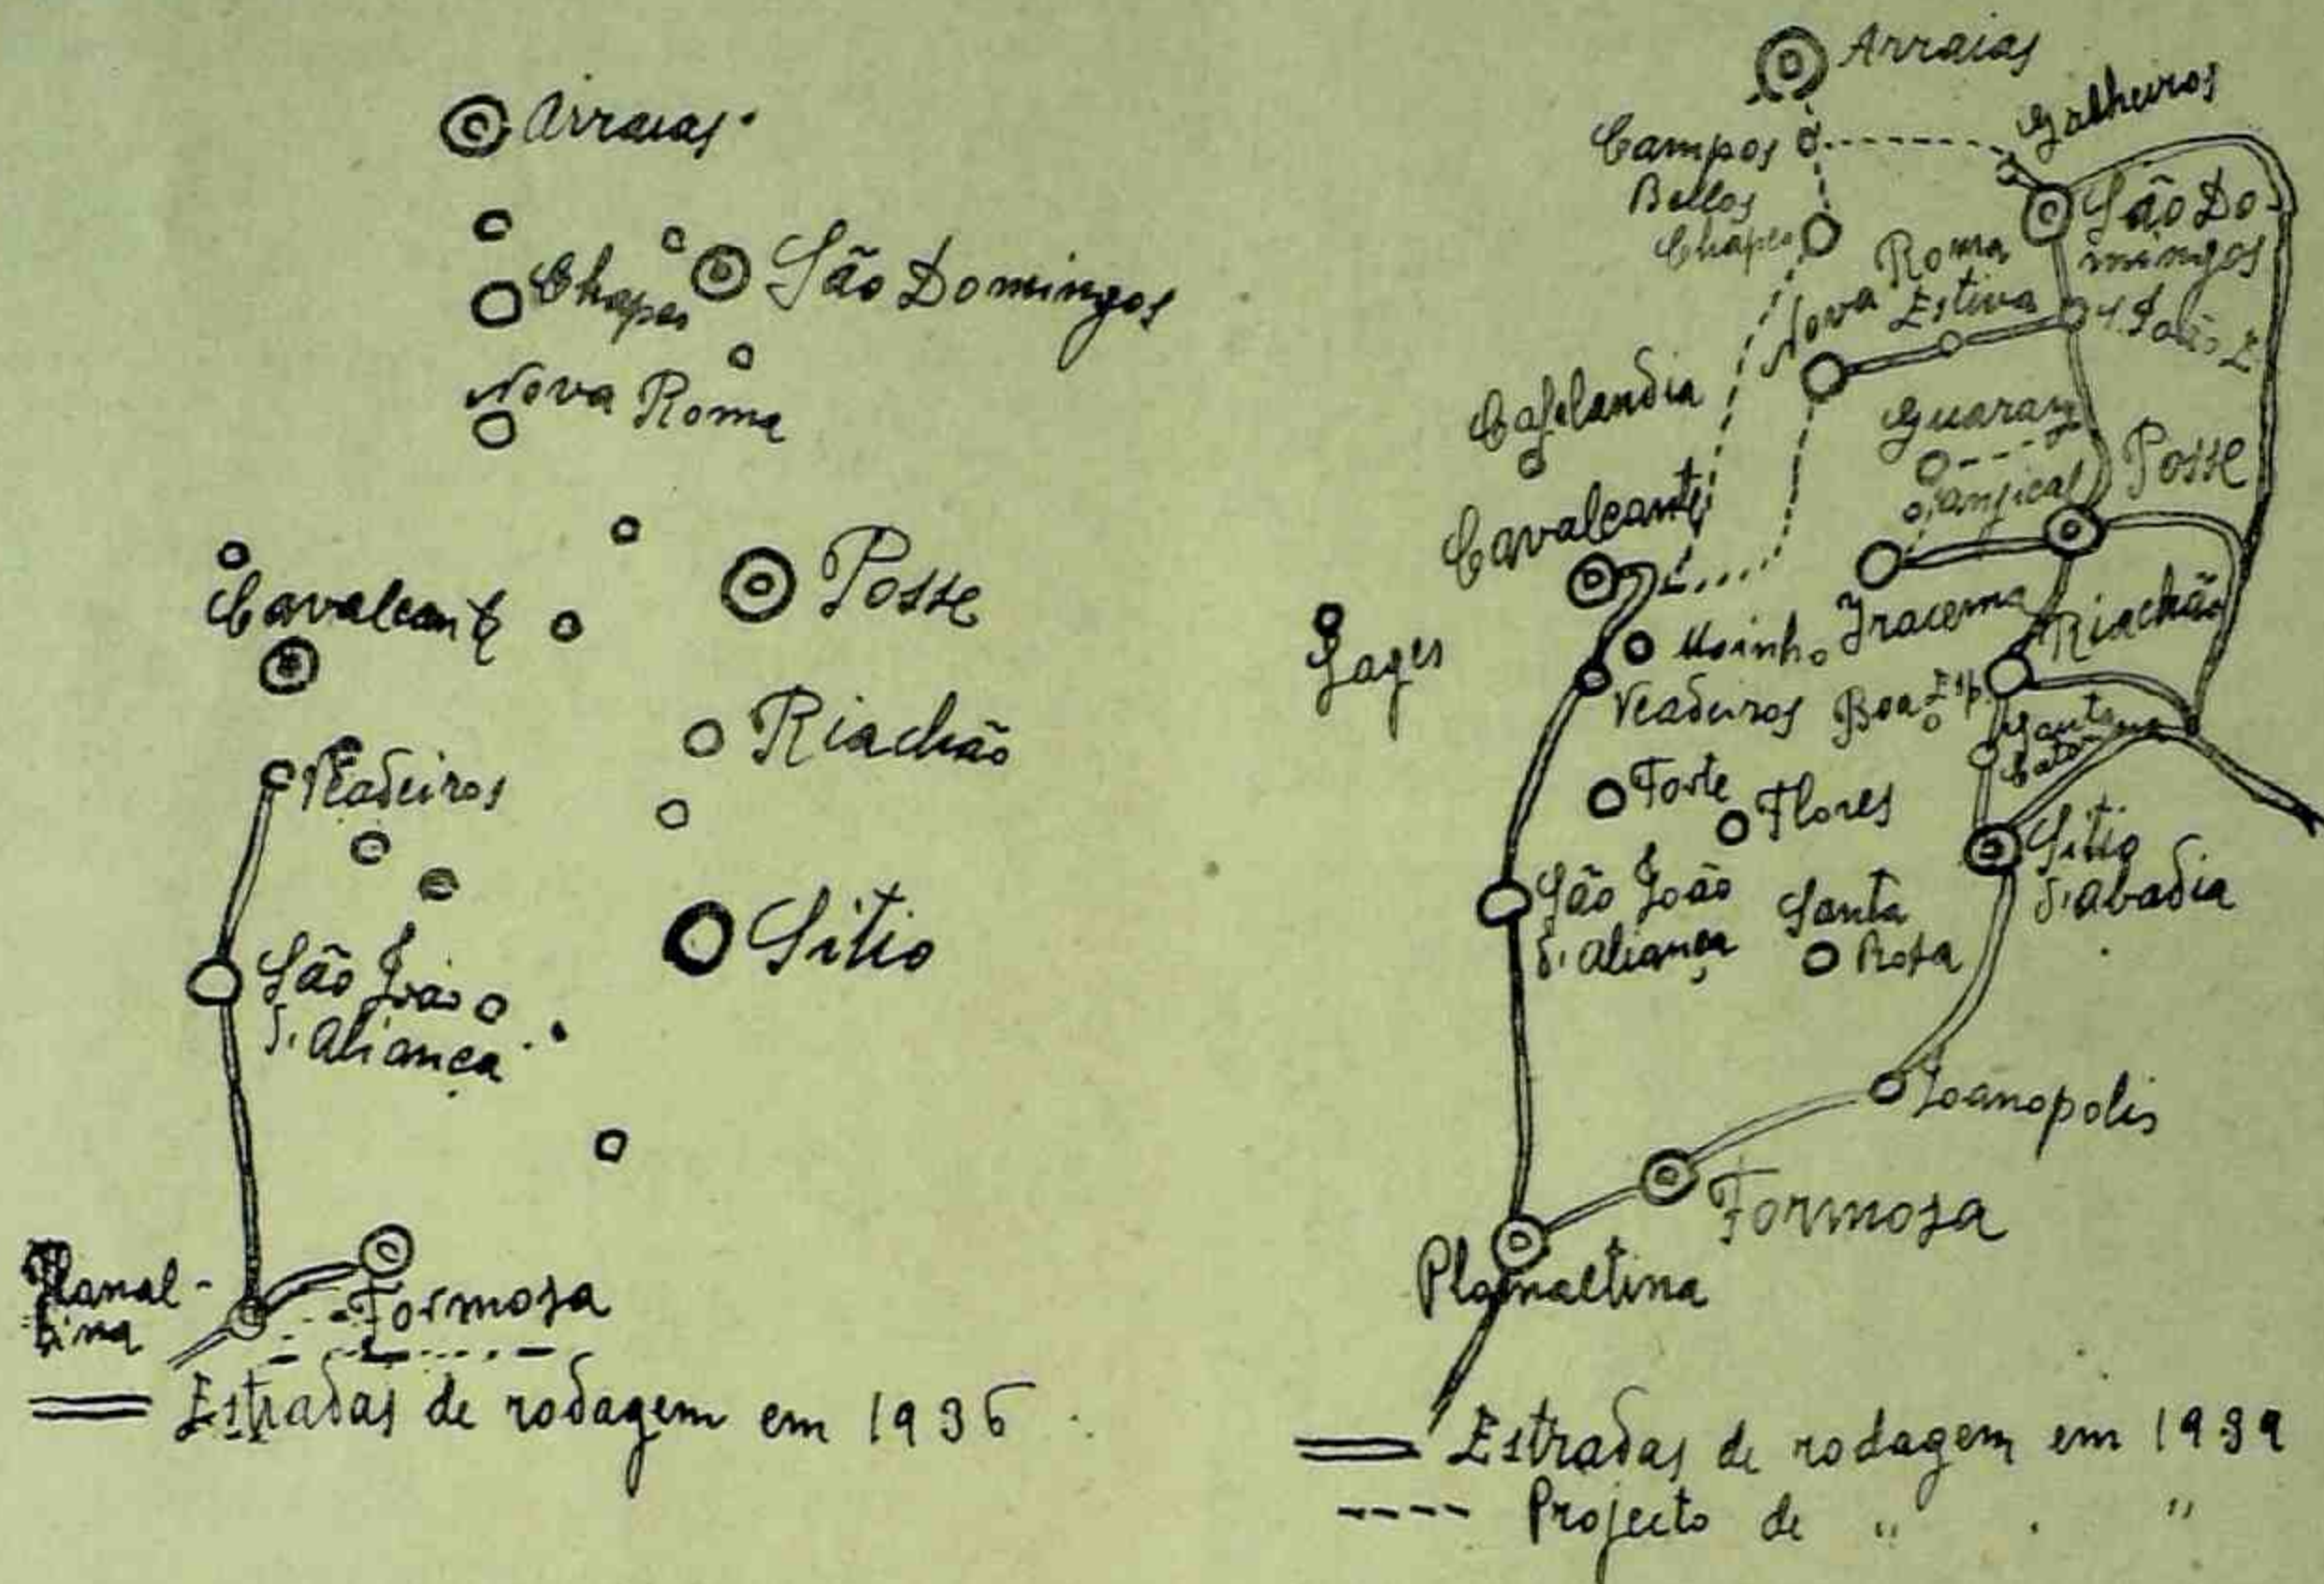 Arraias
Chapeo
São Domingos
Nova Roma
Cavalcante
Posse
Riachão
Veadeiros
Sitio
São João
d'Aliança
Formosa
Planal-
tina
Estradas de rodagem em 1936
Arraias
Galheiros
Campos
Bellos
São Do-
mingos
Chapeo
Nova Roma
Estiva
S. João E.
Cafelandia
Guarany
Posse
Cavalcante
Iracema
Riachão
Lages
Moinho
Veadeiros
Boa Esp.
Forte
Flores
Sitio
d'Abadia
São João
d'Aliança
Santa
Rosa
Joanopolis
Formosa
Planaltina
Estradas de rodagem em 1939
Projecto de " "